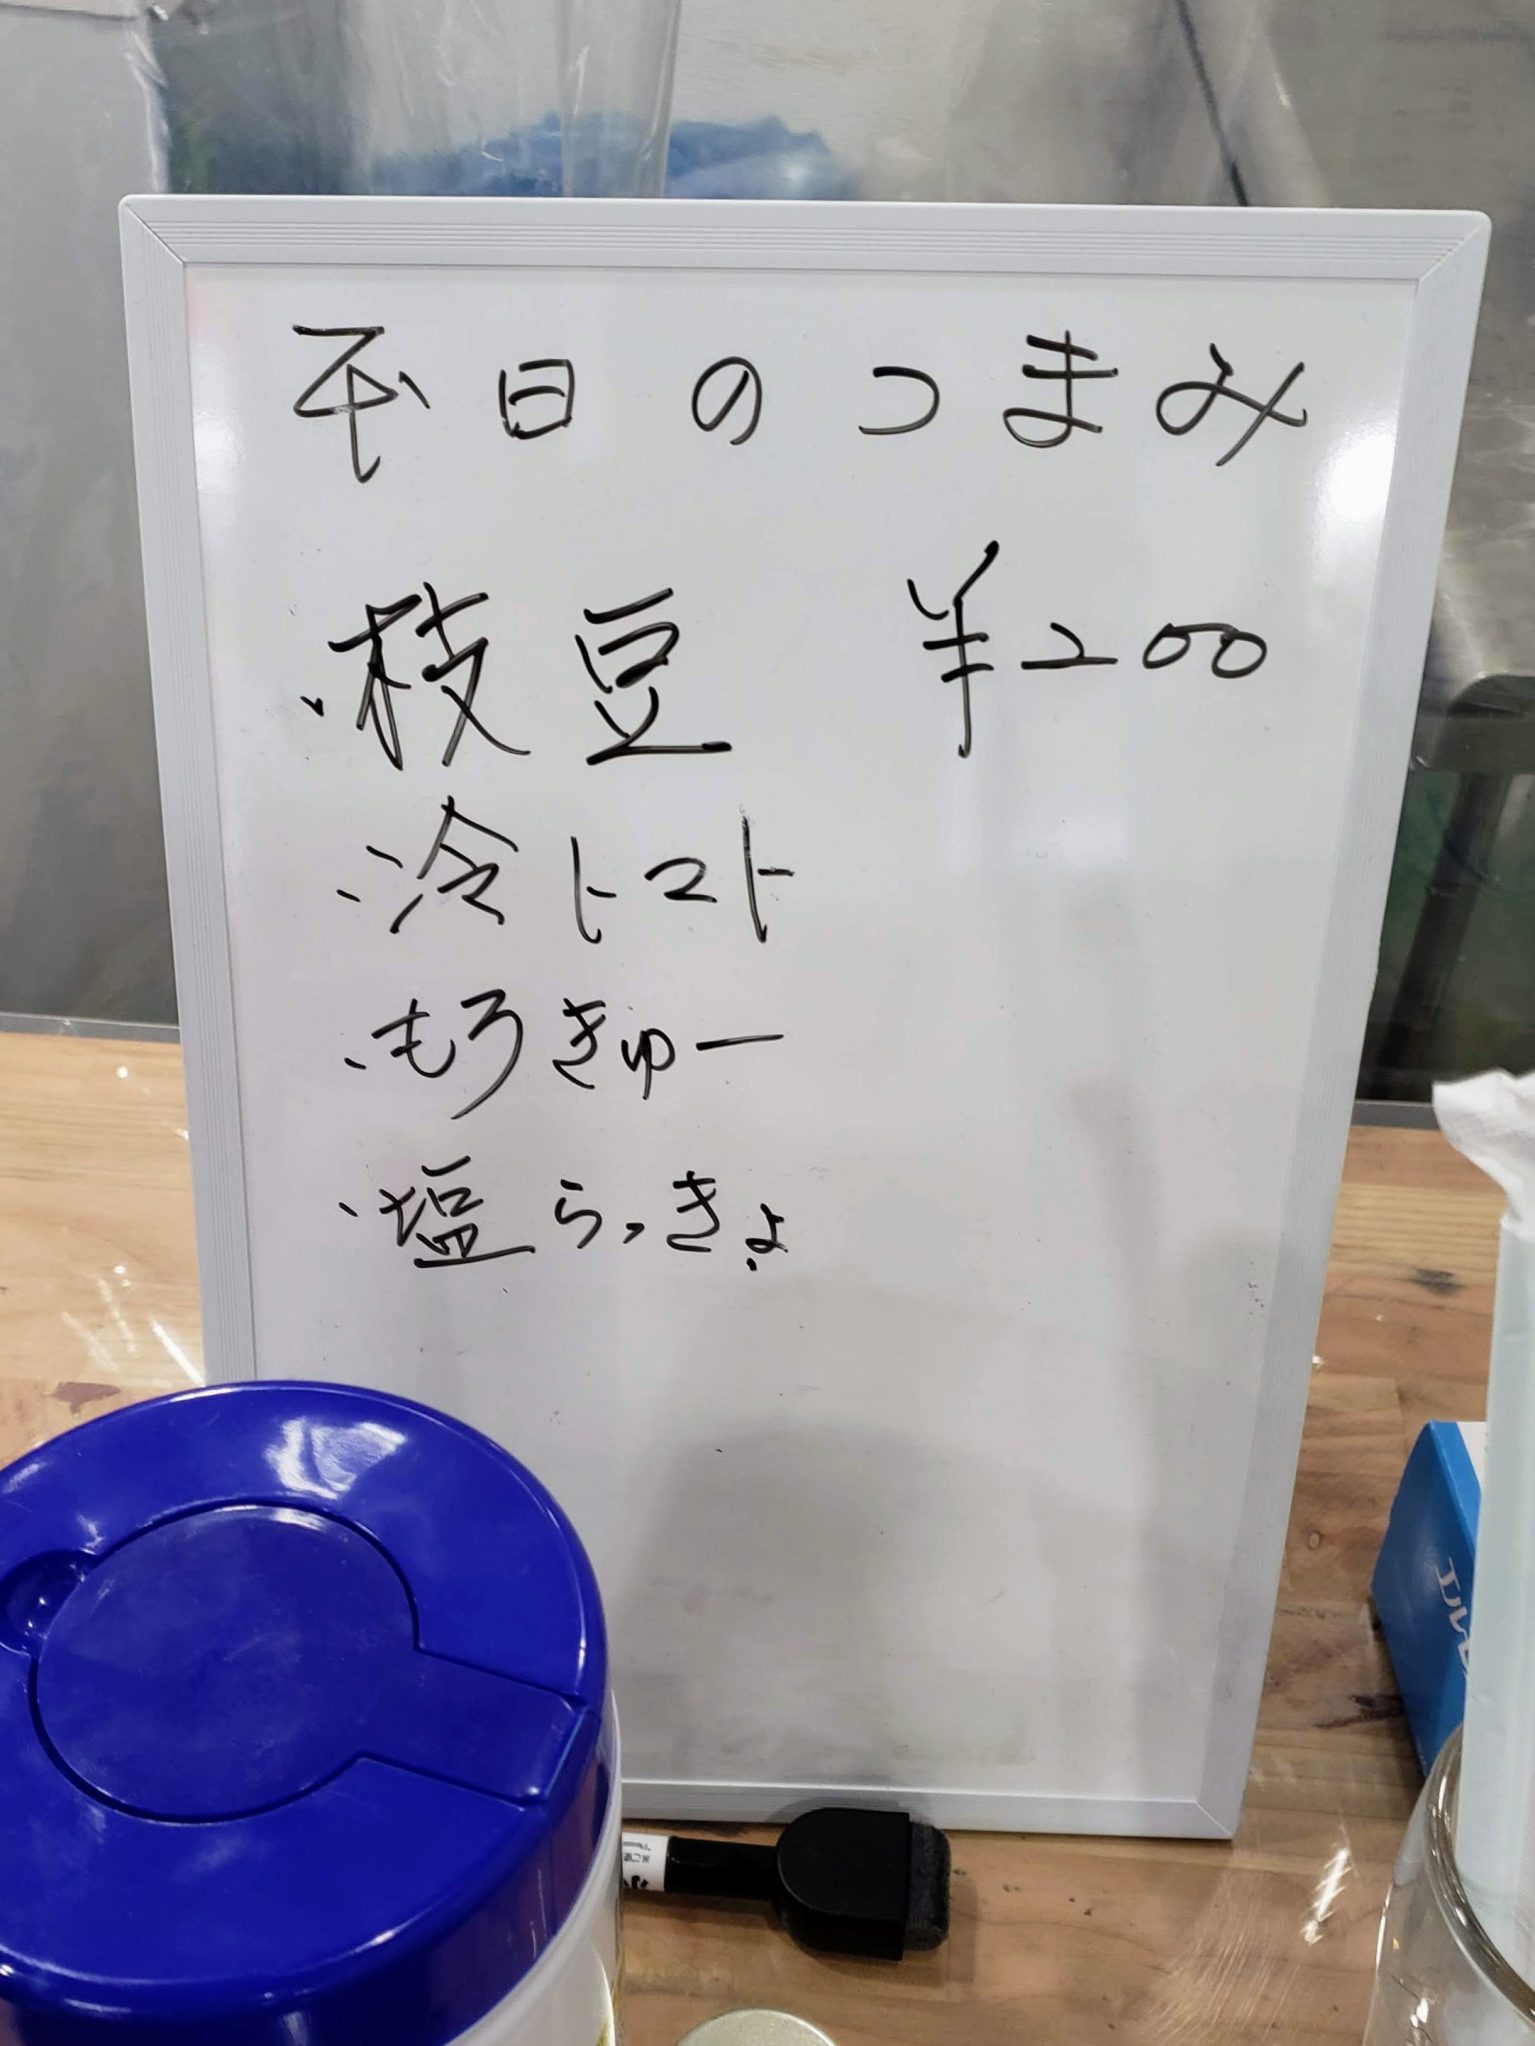 平日のつまみ
・枝豆 ¥200
・冷トマト
・もろきゅー
・塩らっきょ